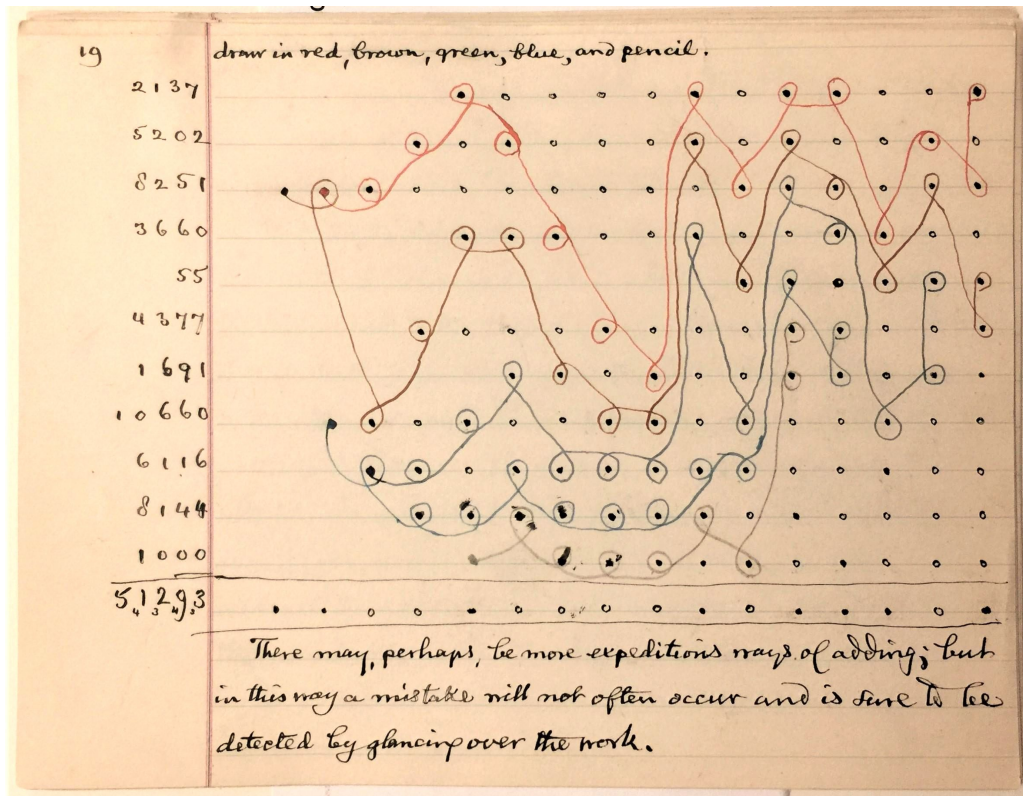 19
draw in red, brown, green, blue, and pencil.
2137
5202
8251
3660
55
4377
1691
10660
6116
8144
1000
51293
4 3 4 3
There may, perhaps, be more expeditious ways of adding; but
in this way a mistake will not often occur and is sure to be
detected by glancing over the work.